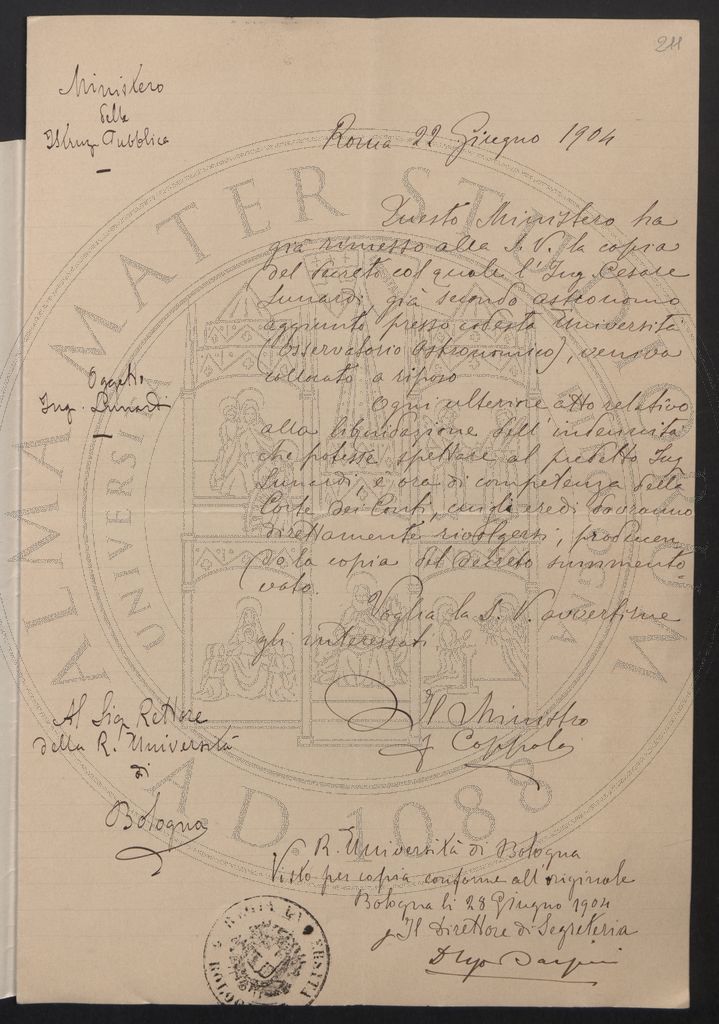 211
Ministero
della
Istruz. Pubblica
Roma 22 Giugno 1904
Questo Ministero ha
già rimesso alla S. V. la copia
del decreto col quale l'Ing. Cesare
Lunardi, già secondo astronomo
aggiunto presso codesta Università
(Osservatorio Astronomico), veniva
collocato a riposo
Oggetto
Ing. Lunardi
Ogni ulteriore atto relativo
alla liquidazione dell'indennità
che potesse spettare al predetto Ing
Lunardi, è ora di competenza della
Corte dei Conti, cui gli eredi dovranno
direttamente rivolgersi, producen
do la copia del decreto summento
vato.
Voglia la S. V. avvertirne
gli interessati
Il Ministro
f Coppola
Al Sig Rettore
della R. Università
di
Bologna
R. Università di Bologna
Visto per copia conforme all'originale
Bologna li 28 Giugno 1904
Il Direttore di Segreteria
ALMA MATER STUDIORUM
A.D. 1088